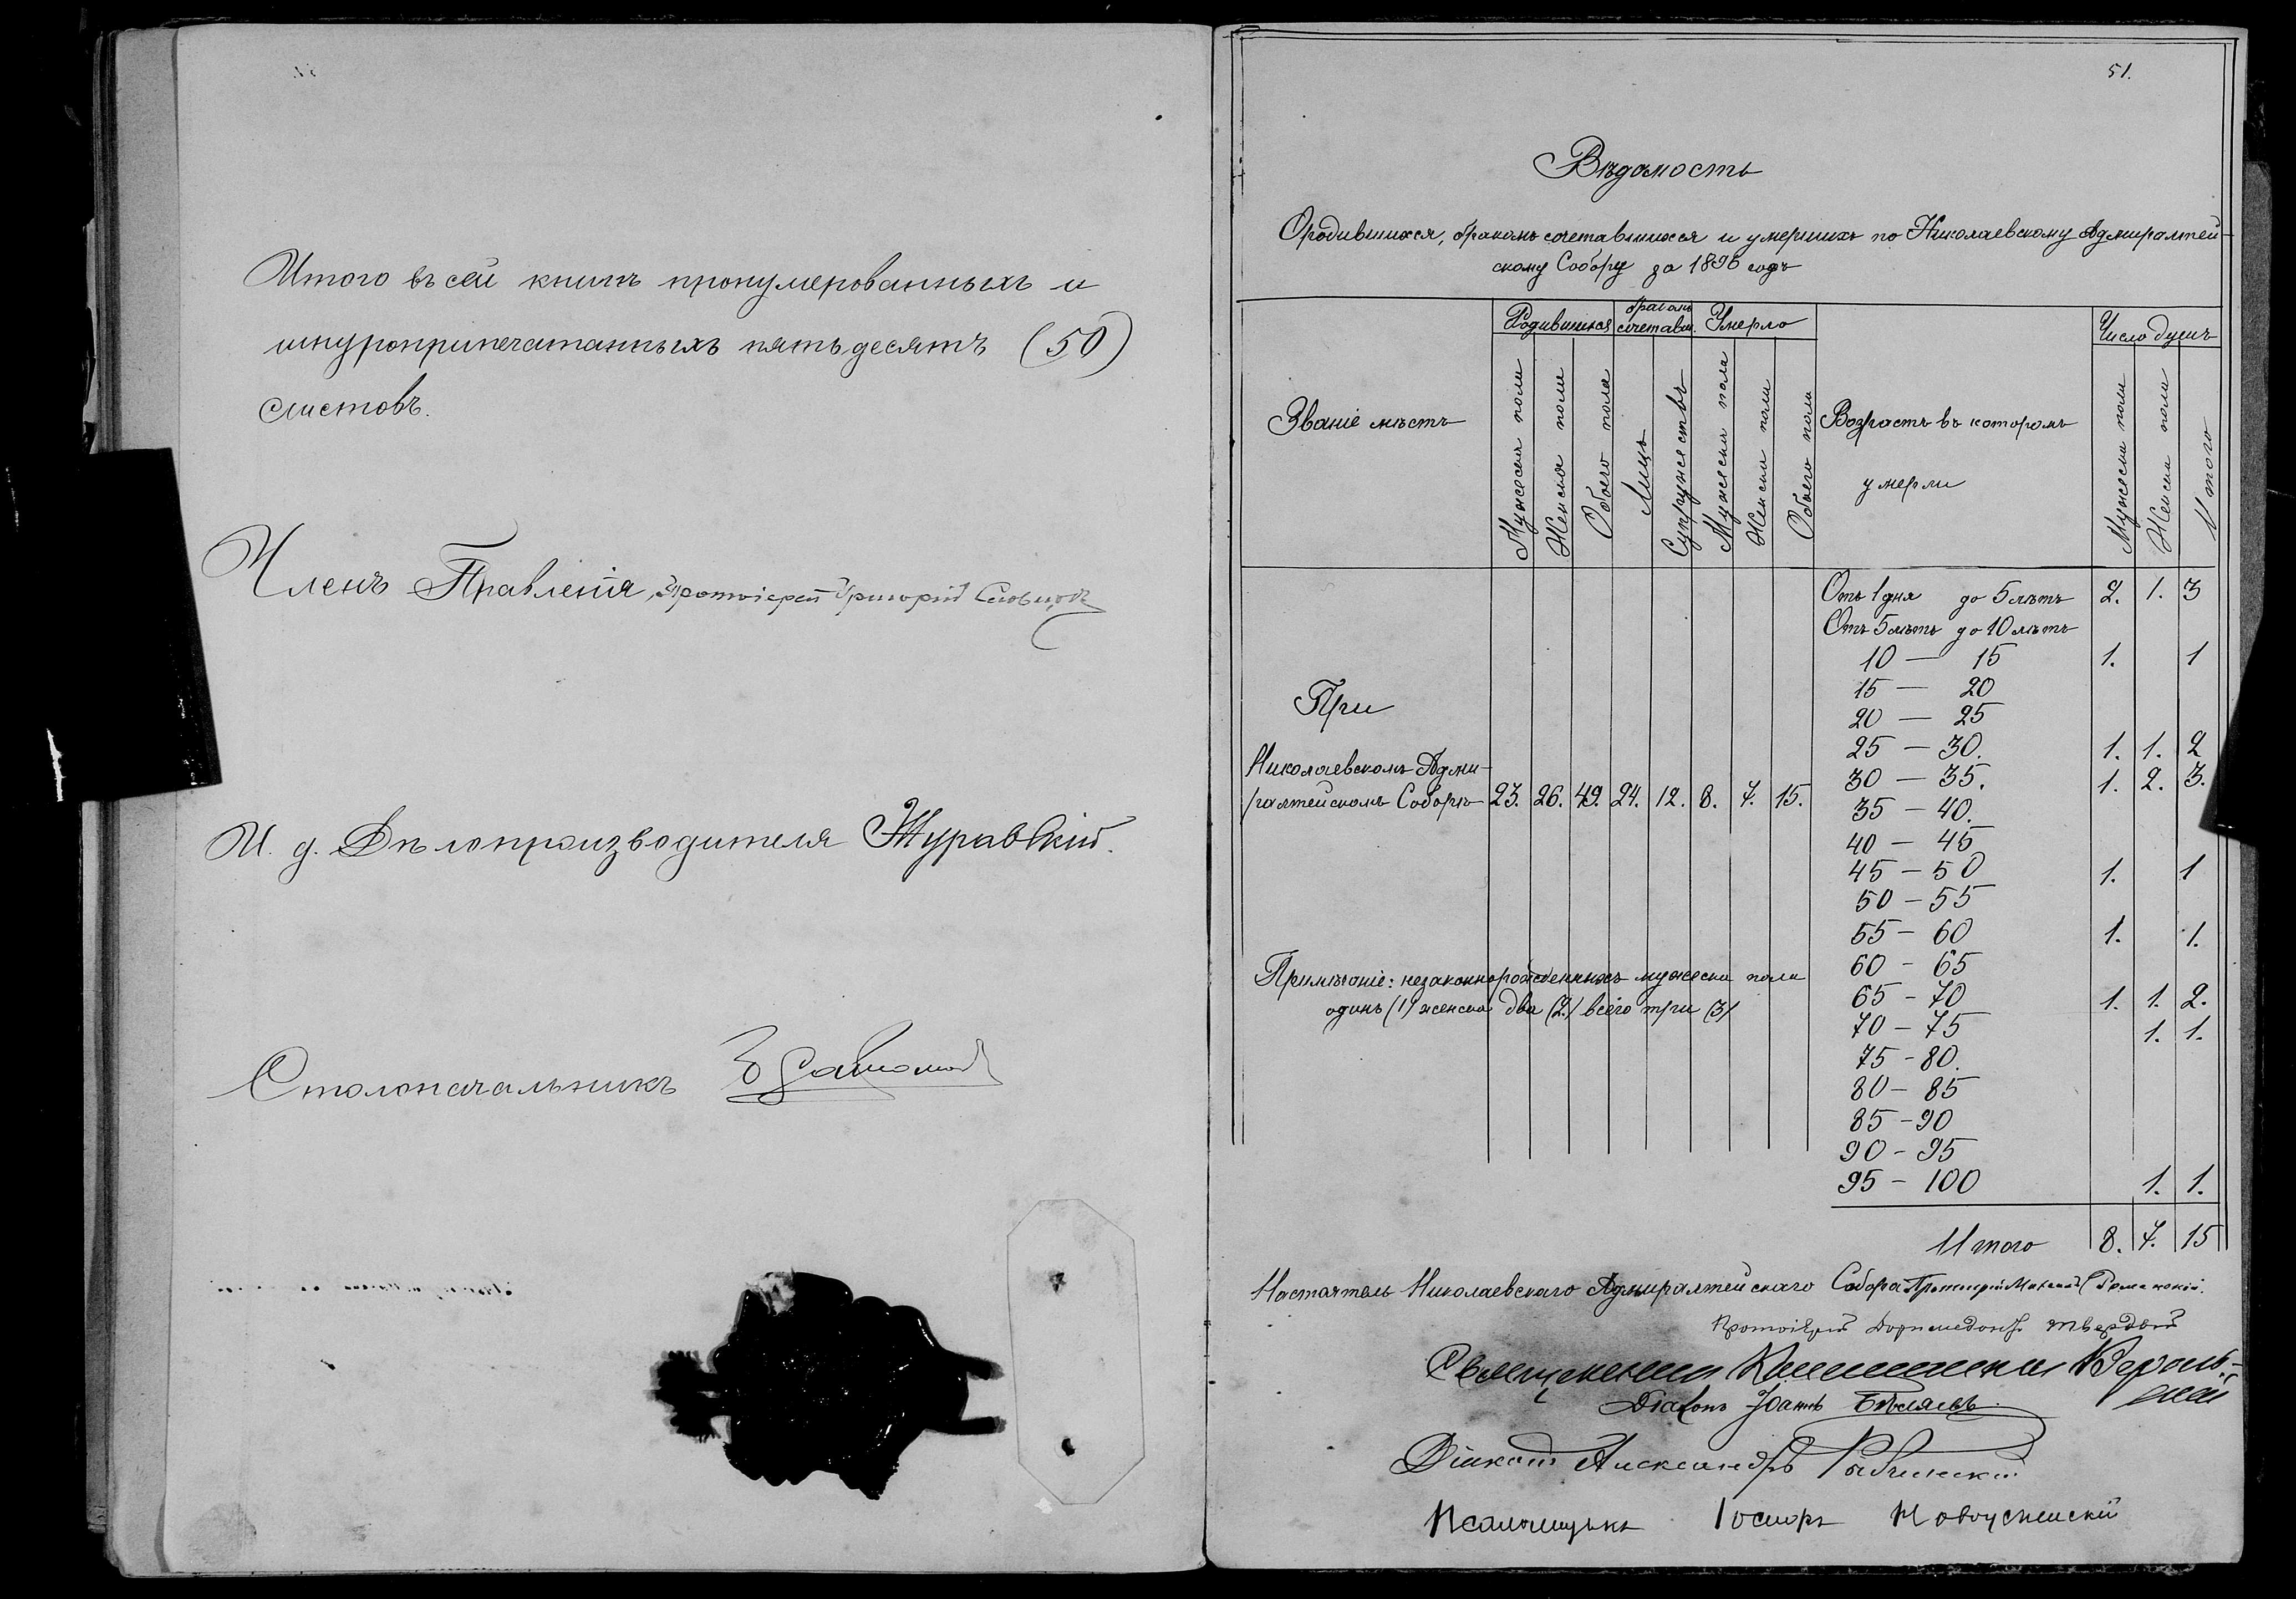 Итого въ сей книгѣ пронумерованныхъ и
шнуроприпечатанныхъ пятьдесятъ (50)
листовъ.
Членъ Правленія, Протоіерей Григорій
И. д. Дѣлопроизводителя Журавскій.
Столоначальникъ
51.
Вѣдомость
О родившихся, бракомъ сочетавшихся и умершихъ по Николаевскому Адмиралтей-
скому Собору за 1896 годъ
Званіе мѣстъ
Родившихся
Мужеска пола
Женска пола
Обоего пола
Бракомъ сочетавш.
Лицъ
Супружествъ
Умерло
Мужеска пола
Женска пола
Обоего пола
Возрастъ въ которомъ
умерли
Число душъ
Мужеска пола
Женска пола
Итого
При
Николаевскомъ Адми-
ралтейскомъ Соборѣ 23. 26. 49. 24. 12. 8. 7. 15.
Примѣчаніе: незаконнорожденныхъ мужеска пола
одинъ (1) женска два (2) всего три (3)
Отъ 1 дня до 5 лѣтъ 2. 1. 3
Отъ 5 лѣтъ до 10 лѣтъ
10 — 15 1. 1
15 — 20
20 — 25
25 — 30. 1. 1. 2
30 — 35. 1. 2. 3.
35 — 40.
40 — 45
45 — 50 1. 1
50 — 55
55 — 60 1. 1.
60 — 65
65 — 70 1. 1. 2.
70 — 75 1. 1.
75 — 80.
80 — 85
85 — 90
90 — 95
95 — 100 1. 1.
Итого 8. 7. 15
Настоятель Николаевскаго Адмиралтейскаго Собора Протоіерей
Протоіерей Доримедонтъ Твердый
Священникъ
Діаконъ Іоаннъ Бѣляевъ
Діаконъ Александръ
Псаломщикъ Іосифъ